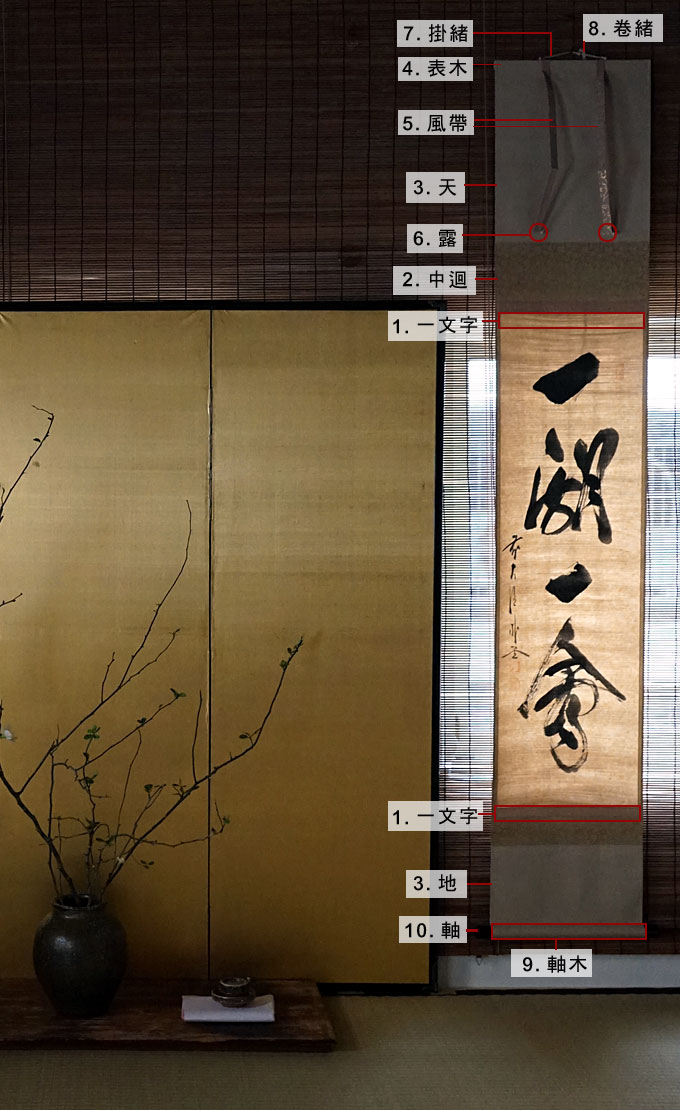 7. 掛緒
8. 卷緒
4. 表木
5. 風帶
3. 天
6. 露
2. 中迴
1. 一文字
一期一會
1. 一文字
3. 地
10. 軸
9. 軸木